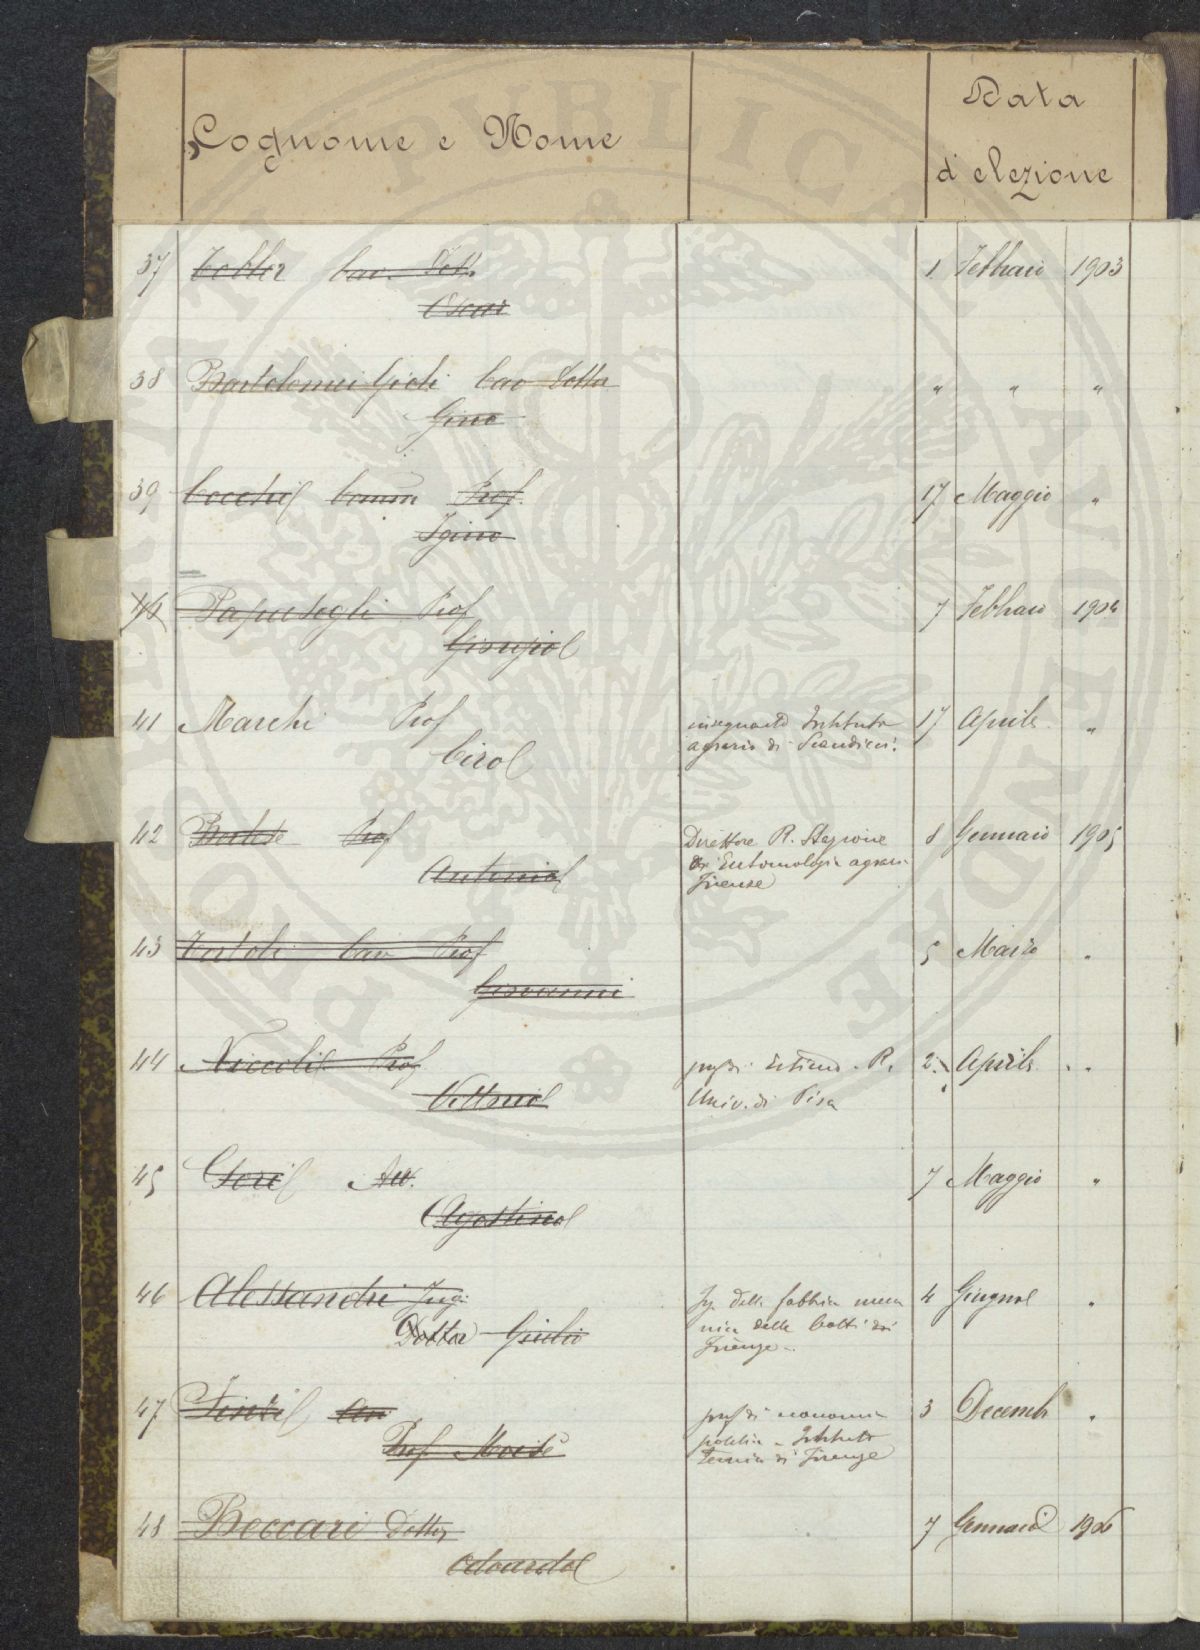 Cognome e Nome
Data
d'elezione
37 Tobler Cav. Dott. 1 Febbraio 1903
Oscar
38 Bartolomei Gioli Cav Dottor " " "
Gino
39 Cocchi Comm Prof. 17 Maggio "
Igino
40 Papasogli Prof 7 Febbraio 1904
Giorgio
41 Marchi Prof insegnante Istituto 17 Aprile "
Ciro agrario di Scandicci.
42 Berlese Prof Direttore R. Stazione 8 Gennaio 1905
Antonio di Entomologia agraria
Firenze
43 Tortoli Cav Prof 5 Marzo "
Giovanni
44 Niccoli Prof prof di Estimo - R. 2 Aprile "
Vittorio Univ. di Pisa
45 Gori Avv. 7 Maggio "
Agostino
46 Alessandri Ing. Ing della fabbrica mecca 4 Giugno "
Dottor Giulio nica delle botti di
Firenze -
47 Finzi Cav prof di economia 3 Decemb "
Prof. Moisè politica - Istituto
tecnico di Firenze
48 Beccari Dottor 7 Gennaio 1906
Odoardo
PVBLICAE
AVGENDAE
PROSPERITATI